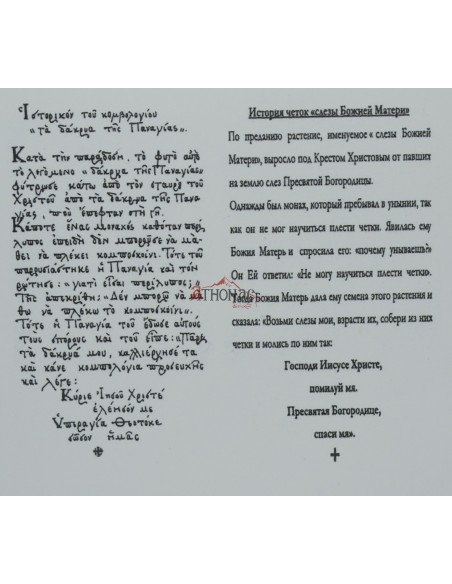 Ἱστορικόν τοῦ κομβολογίου
"τὰ δάκρυα τῆς Παναγίας".
Κατὰ τὴν παράδοση, τὸ φυτὸ αὐτὸ
τὸ λεγόμενο "δάκρυα τῆς Παναγίας"
φύτρωσε κάτω ἀπὸ τὸν σταυρὸ τοῦ
Χριστοῦ ἀπὸ τὰ δάκρυα τῆς Πανα
γίας, ποὺ ἔπεφταν στὴ γῆ.
Κάποτε ἕνας μοναχὸς καθόταν περί
λυπος ἐπειδὴ δὲν μποροῦσε νὰ μά-
θει νὰ πλέκει κομποσκοίνι. Τότε τοῦ
παρουσιάστηκε ἡ Παναγία καὶ τὸν
ρώτησε: "γιατί εἶσαι περίλυπος;"
Τῆς ἀπεκρίθη: "Δὲν μπορῶ νὰ μά
θω νὰ πλέκω τὸ κομποσκοίνι".
Τότε ἡ Παναγία τοῦ ἔδωσε αὐτοὺς
τοὺς σπόρους καὶ τοῦ εἶπε: "Πάρε
τὰ δάκρυά μου, καλλιέργησέ τα
καὶ κάνε κομπολόγια προσευχῆς
καὶ λέγε:
Κύριε Ἰησοῦ Χριστέ
ἐλέησόν με
Ὑπεραγία Θεοτόκε
σῶσον ἡμᾶς
История четок «слезы Божией Матери»
По преданию растение, именуемое « слезы Божией
Матери», выросло под Крестом Христовым от павших
на землю слез Пресвятой Богородицы.
Однажды был монах, который пребывал в унынии, так
как он не мог научиться плести четки. Явилась ему
Божия Матерь и спросила его: «почему унываешь?»
Он Ей ответил: «Не могу научиться плести четки».
Тогда Божия Матерь дала ему семена этого растения и
сказала: «Возьми слезы мои, взрасти их, собери из них
четки и молись по ним так:
Господи Иисусе Христе,
помилуй мя.
Пресвятая Богородице,
спаси мя».
ATHONAS